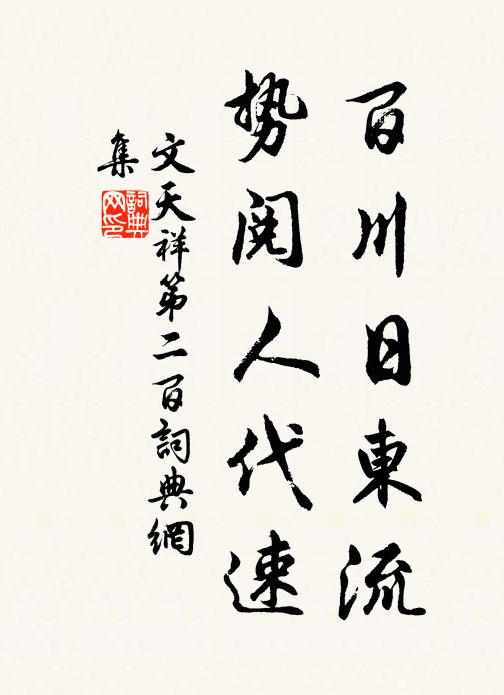 百川日東流
势閱人代速
文天祥第二百詞典網
集
詞典
网印